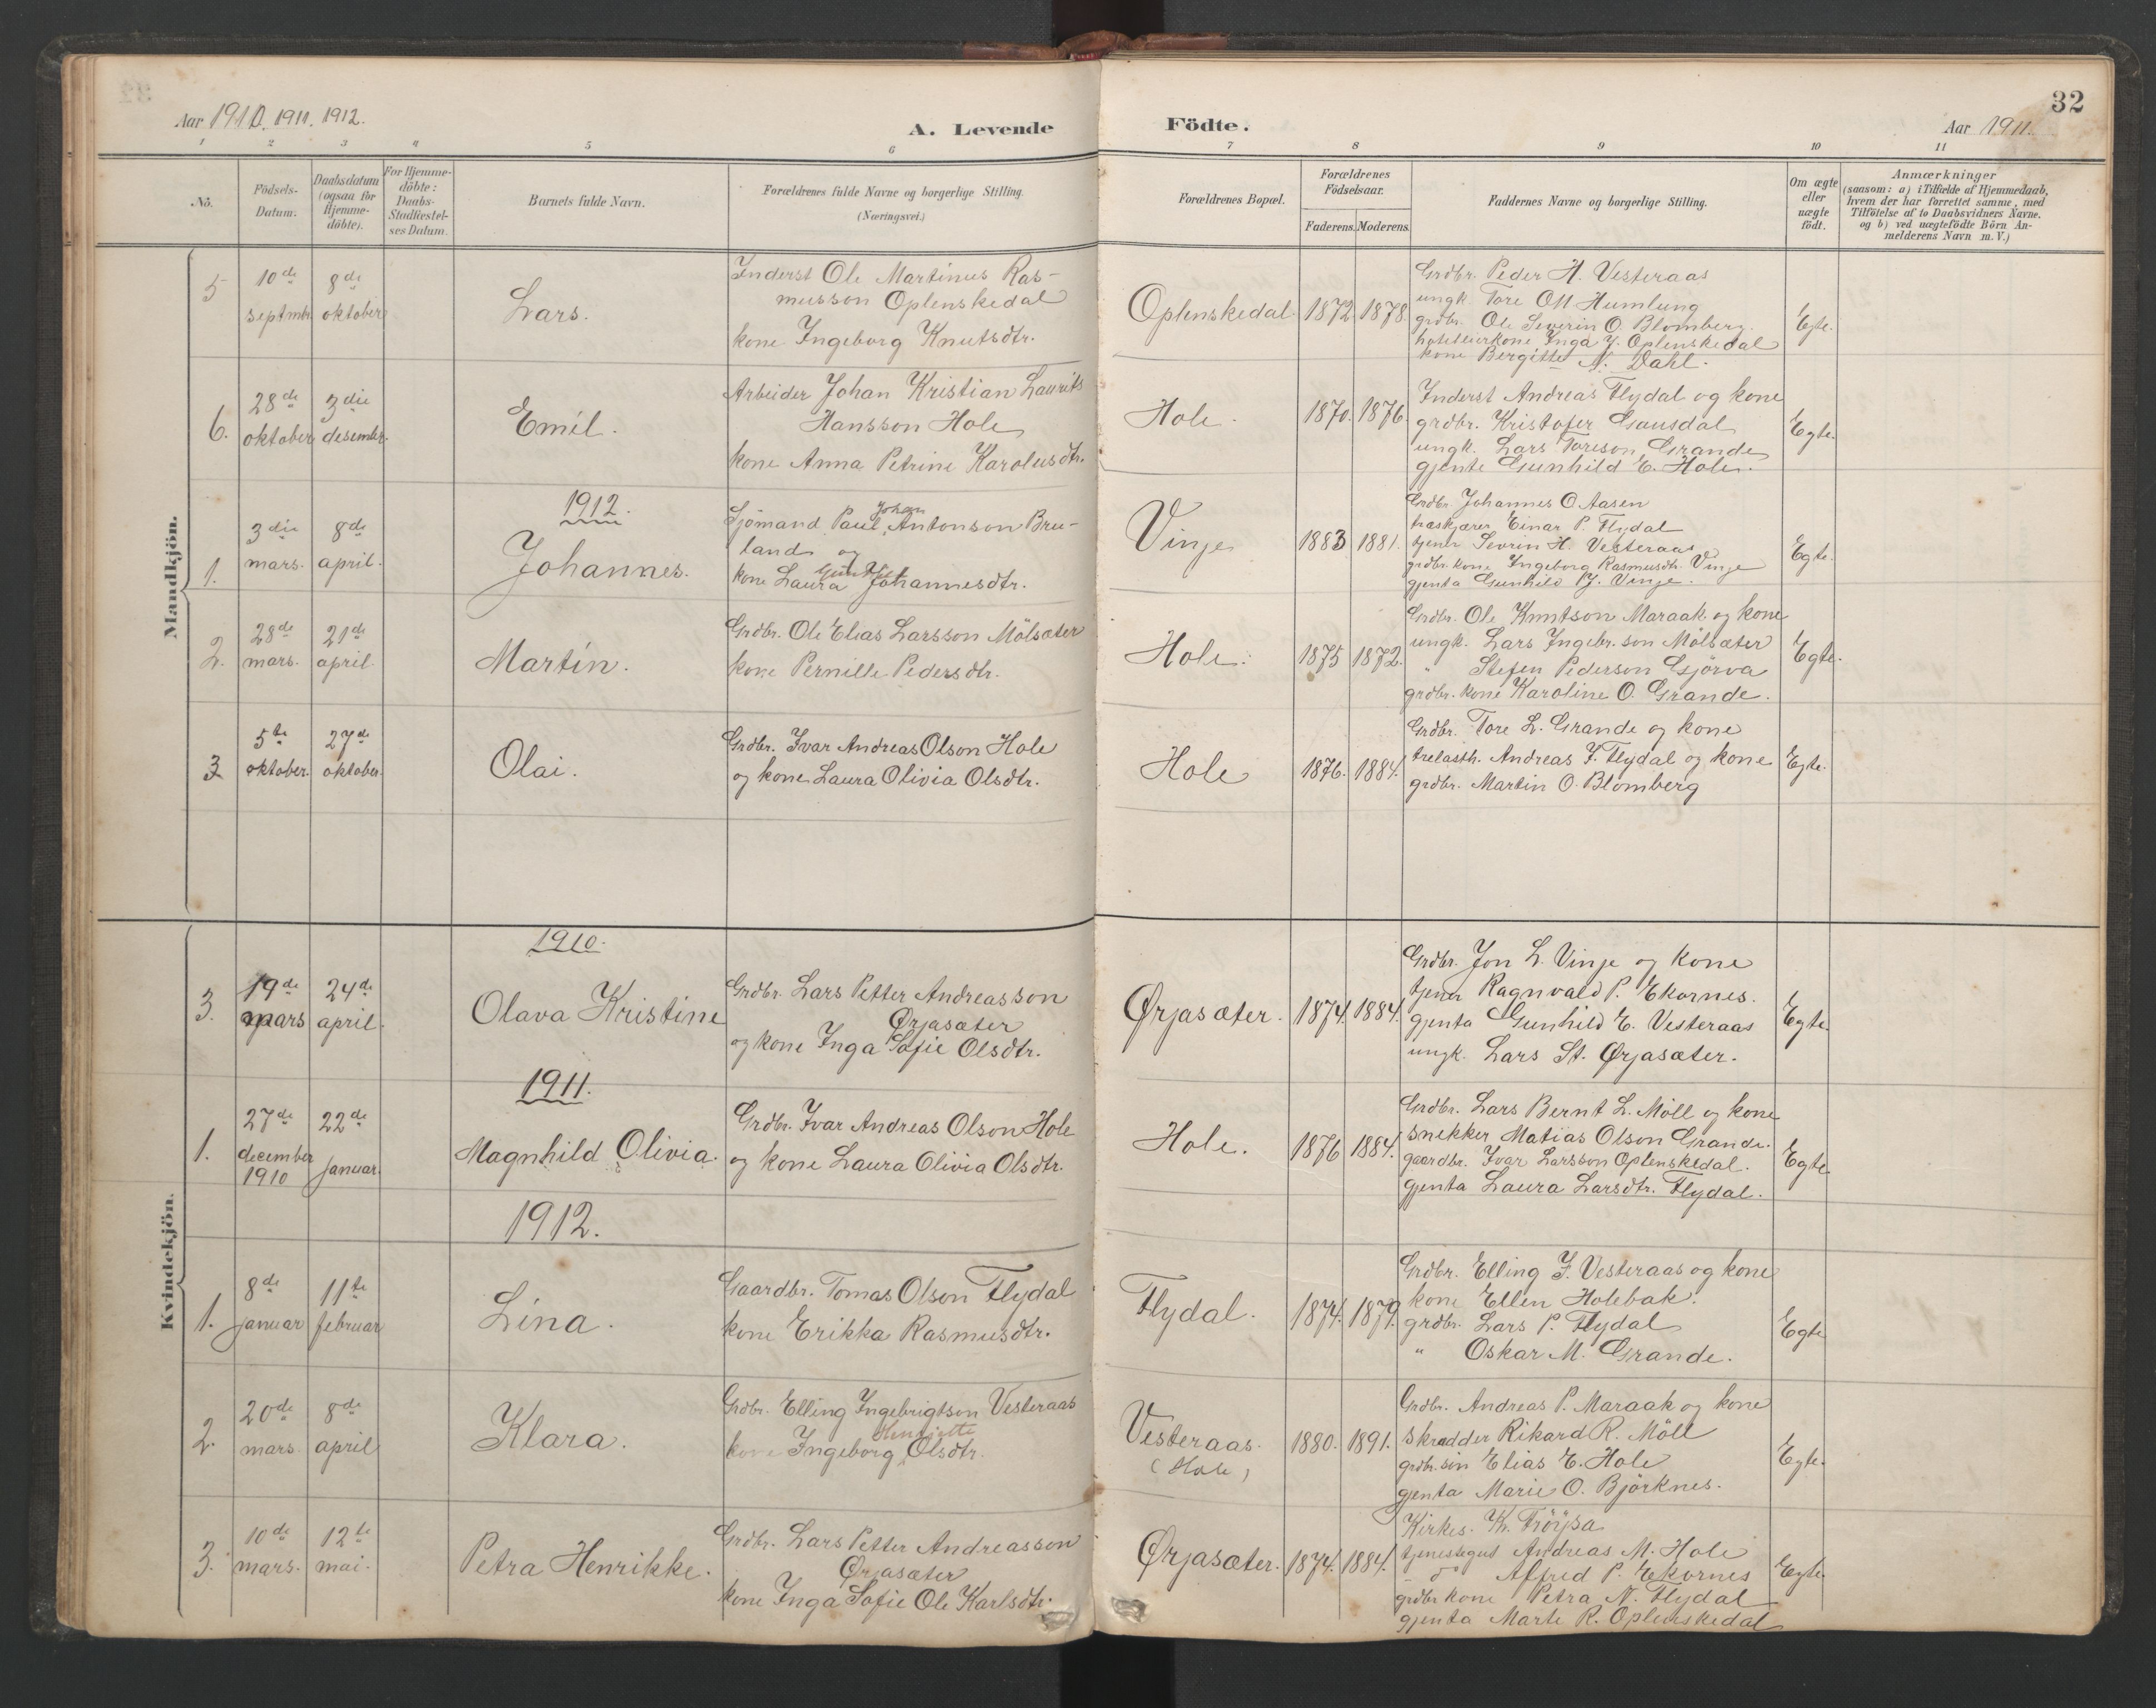 Aar 1910. 1911. 1912.
A. Levende
Födte.
Aar 1911.
32
1 2 3 4 5 6 7 8 9 10 11
No.
Födsels-Datum.
Daabsdatum (ogsaa for Hjemme-döbte).
For Hjemme-döbte: Daabs-Stadfæstel-ses Datum.
Barnets fulde Navn.
Forældrenes fulde Navne og borgerlige Stilling.
(Næringsvei.)
Forældrenes Bopæl.
Forældrenes Födselsaar.
Faderens. Moderens.
Faddernes Navne og borgerlige Stilling.
Om ægte eller uægte födt.
Anmærkninger
(saasom: a) i Tilfælde af Hjemmedaab,
hvem der har forrettet samme, med
Tilföielse af to Daabsvidners Navne,
og b) ved uægtefödte Börn An-
melderens Navn m. V.)
Mandkjön.
5 10de septmbr. 8de oktober
Lars.
Inderst Ole Martinus Ras-
musson Oplenskedal
kone Ingeborg Knutsdtr.
Oplenskedal. 1872. 1878.
Grdbr. Peder H. Vesteraas
ungk. Tore Olf Humlung
grdbr. Ole Severin O. Blomberg.
hotelleierkone Inga J. Oplenskedal
kone Bergitte N. Dahl.
Egte.
6. 28de oktober 3die desember.
Emil.
Arbeider Johan Kristian Laurits
Hansson Hole
kone Anna Petrine Karolusdtr.
Hole. 1870. 1876.
Inderst Andreas Flydal og kone
grdbr. Kristofer Gausdal
ungk. Lars Toreson Grande
gjente Gunhild E. Hole.
Egte.
1912.
1. 3die mars. 8de april.
Johannes.
Sjömand Paul Johan Antonson Bru-
land og
kone Laura Johannesdtr.
Vinje 1883 1881.
Grdbr. Johannes O Aasen
træskjærer Einar P. Flydal
tjener Sevrin H. Vesteraas
grdbr. kone Ingeborg Rasmusdtr. Vinje
gjenta Gunhild P.J. Vinje.
Egte.
2. 28de mars. 21de april.
Martin.
Grdbr. Ole Elias Larsson Mölsæter
kone Pernille Pedersdtr.
Hole. 1875 1872.
Grdbr. Ole Knutson Maraak og kone
ungk. Lars Ingebr. son Mölsæter
" Stefen Pederson Gjörva
grdbr. kone Karoline O. Grande.
Egte.
3 5te oktober. 27de oktober.
Olai.
Grdbr. Ivar Andreas Olson Hole
og kone Laura Olivia Olsdtr.
Hole 1876. 1884.
Grdbr. Tore L. Grande og kone
trelasth. Andreas J. Flydal og kone
grdbr. Martin O. Blomberg
Egte.
Kvindekjön.
1910.
3. 19de mars 24de april.
Olava Kristine
Grdbr. Lars Petter Andreasson
Ørjasæter
og kone Inga Sofie Olsdtr.
Ørjasæter. 1874. 1884.
Grdbr. Jon L. Vinje og kone
tjener Ragnvald P. Ekornes.
gjenta Gunhild E. Vesteraas
ungk. Lars St. Ørjasæter.
Egte.
1911.
1. 27de december 1910 22de januar.
Magnhild Olivia.
Grdbr. Ivar Andreas Olson Hole
og kone Laura Olivia Olsdtr.
Hole. 1876 1884.
Grdbr. Lars Bernt L. Möll og kone
snekker Matias Olson Grande.
gaardbr. Ivar Larsson Oplenskedal.
gjenta Laura Larsdtr. Flydal.
Egte
1912.
1. 8de januar 11te februar
Lina.
Gaardbr. Tomas Olson Flydal
kone Erikka Rasmusdtr.
Flydal. 1874. 1879.
Grdbr. Elling J. Vesteraas og kone
kone Ellen Holebak.
grdbr. Lars P. Flydal
" Oskar M. Grande.
Egte
2. 20de mars. 8de april
Klara.
Grdbr. Elling Ingebrigtson Vesteraas
kone Ingeborg Henriette Olsdtr.
Vesteraas. (Hole) 1880. 1891.
Grdbr. Andreas P. Maraak og kone
Skrædder Rikard R. Möll
grdbr. sön Elias E. Hole
gjenta Marie O. Björknes.
Egte.
3. 10de mars. 12te mai.
Petra Henrikke.
Grdbr. Lars Petter Andreasson
Ørjasæter
kone Inga Sofie Ole Karlsdtr.
Ørjasæter. 1874. 1884.
Kirkes. K. Tröysa
tjenestegut Andreas M. Hole
" do Alfred P. Ekornes
grdbr kone Petra N. Flydal
gjenta Marte R. Oplenskedal
Egte.